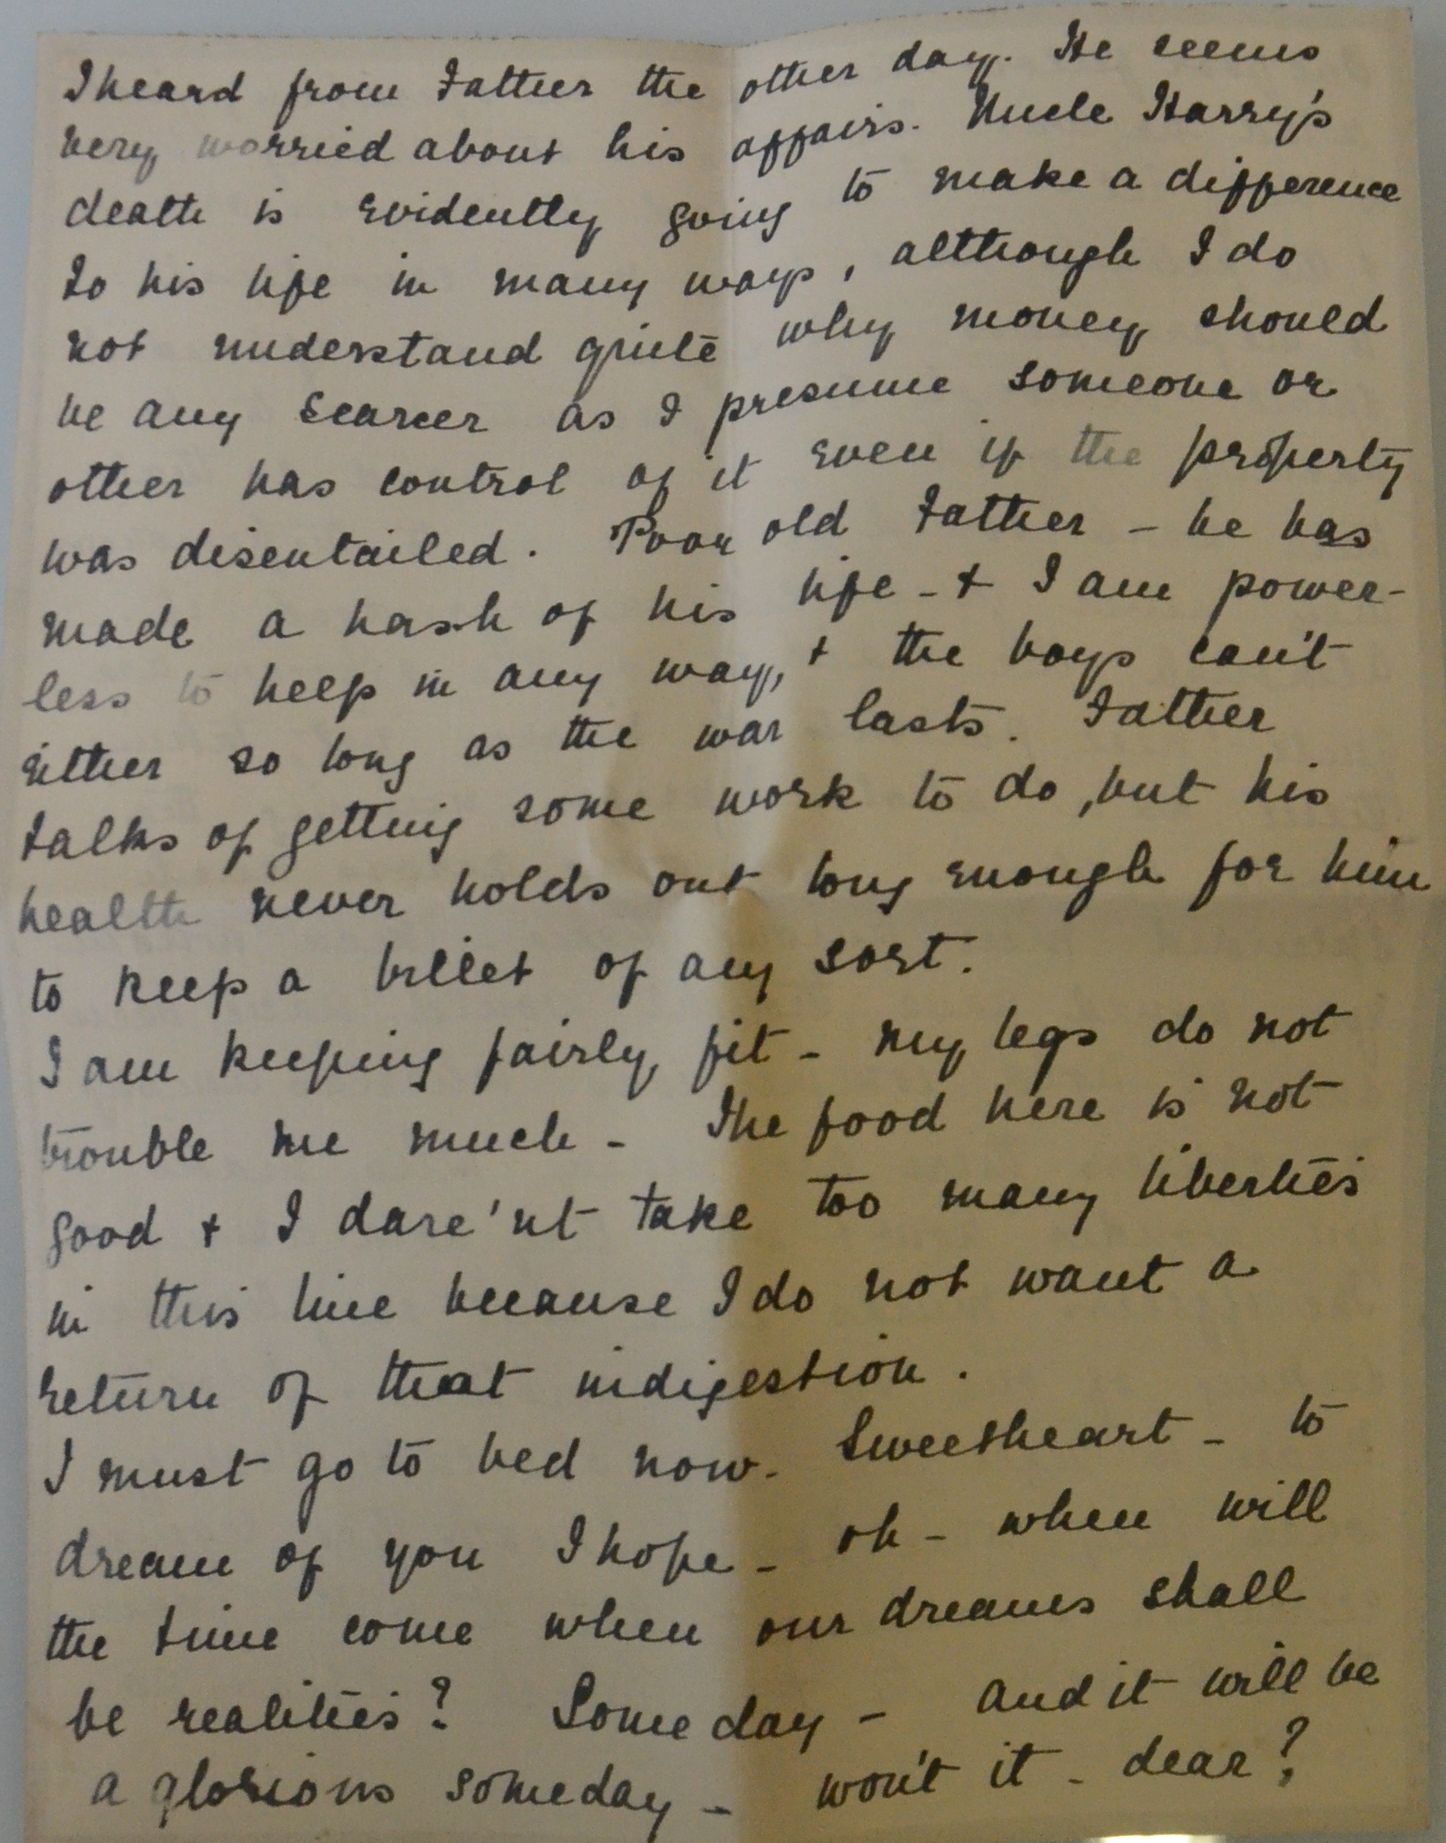 I heard from Father the other day. He seems
very worried about his affairs. Uncle Harry's
death is evidently going to make a difference
to his life in many ways, although I do
not understand quite why money should
be any scarcer as I presume someone or
other has control of it even if the property
was disentailed. Poor old Father - he has
made a hash of his life - & I am power-
less to help in any way, & the boys can't
either so long as the war lasts. Father
talks of getting some work to do, but his
health never holds out long enough for him
to keep a billet of any sort.
I am keeping fairly fit - my legs do not
trouble me much - The food here is not
good & I dare'nt take too many liberties
in this line because I do not want a
return of that indigestion.
I must go to bed now - Sweetheart - to
dream of you I hope - oh - when will
the time come when our dreams shall
be realities? Some day - and it will be
a glorious someday - won't it - dear?